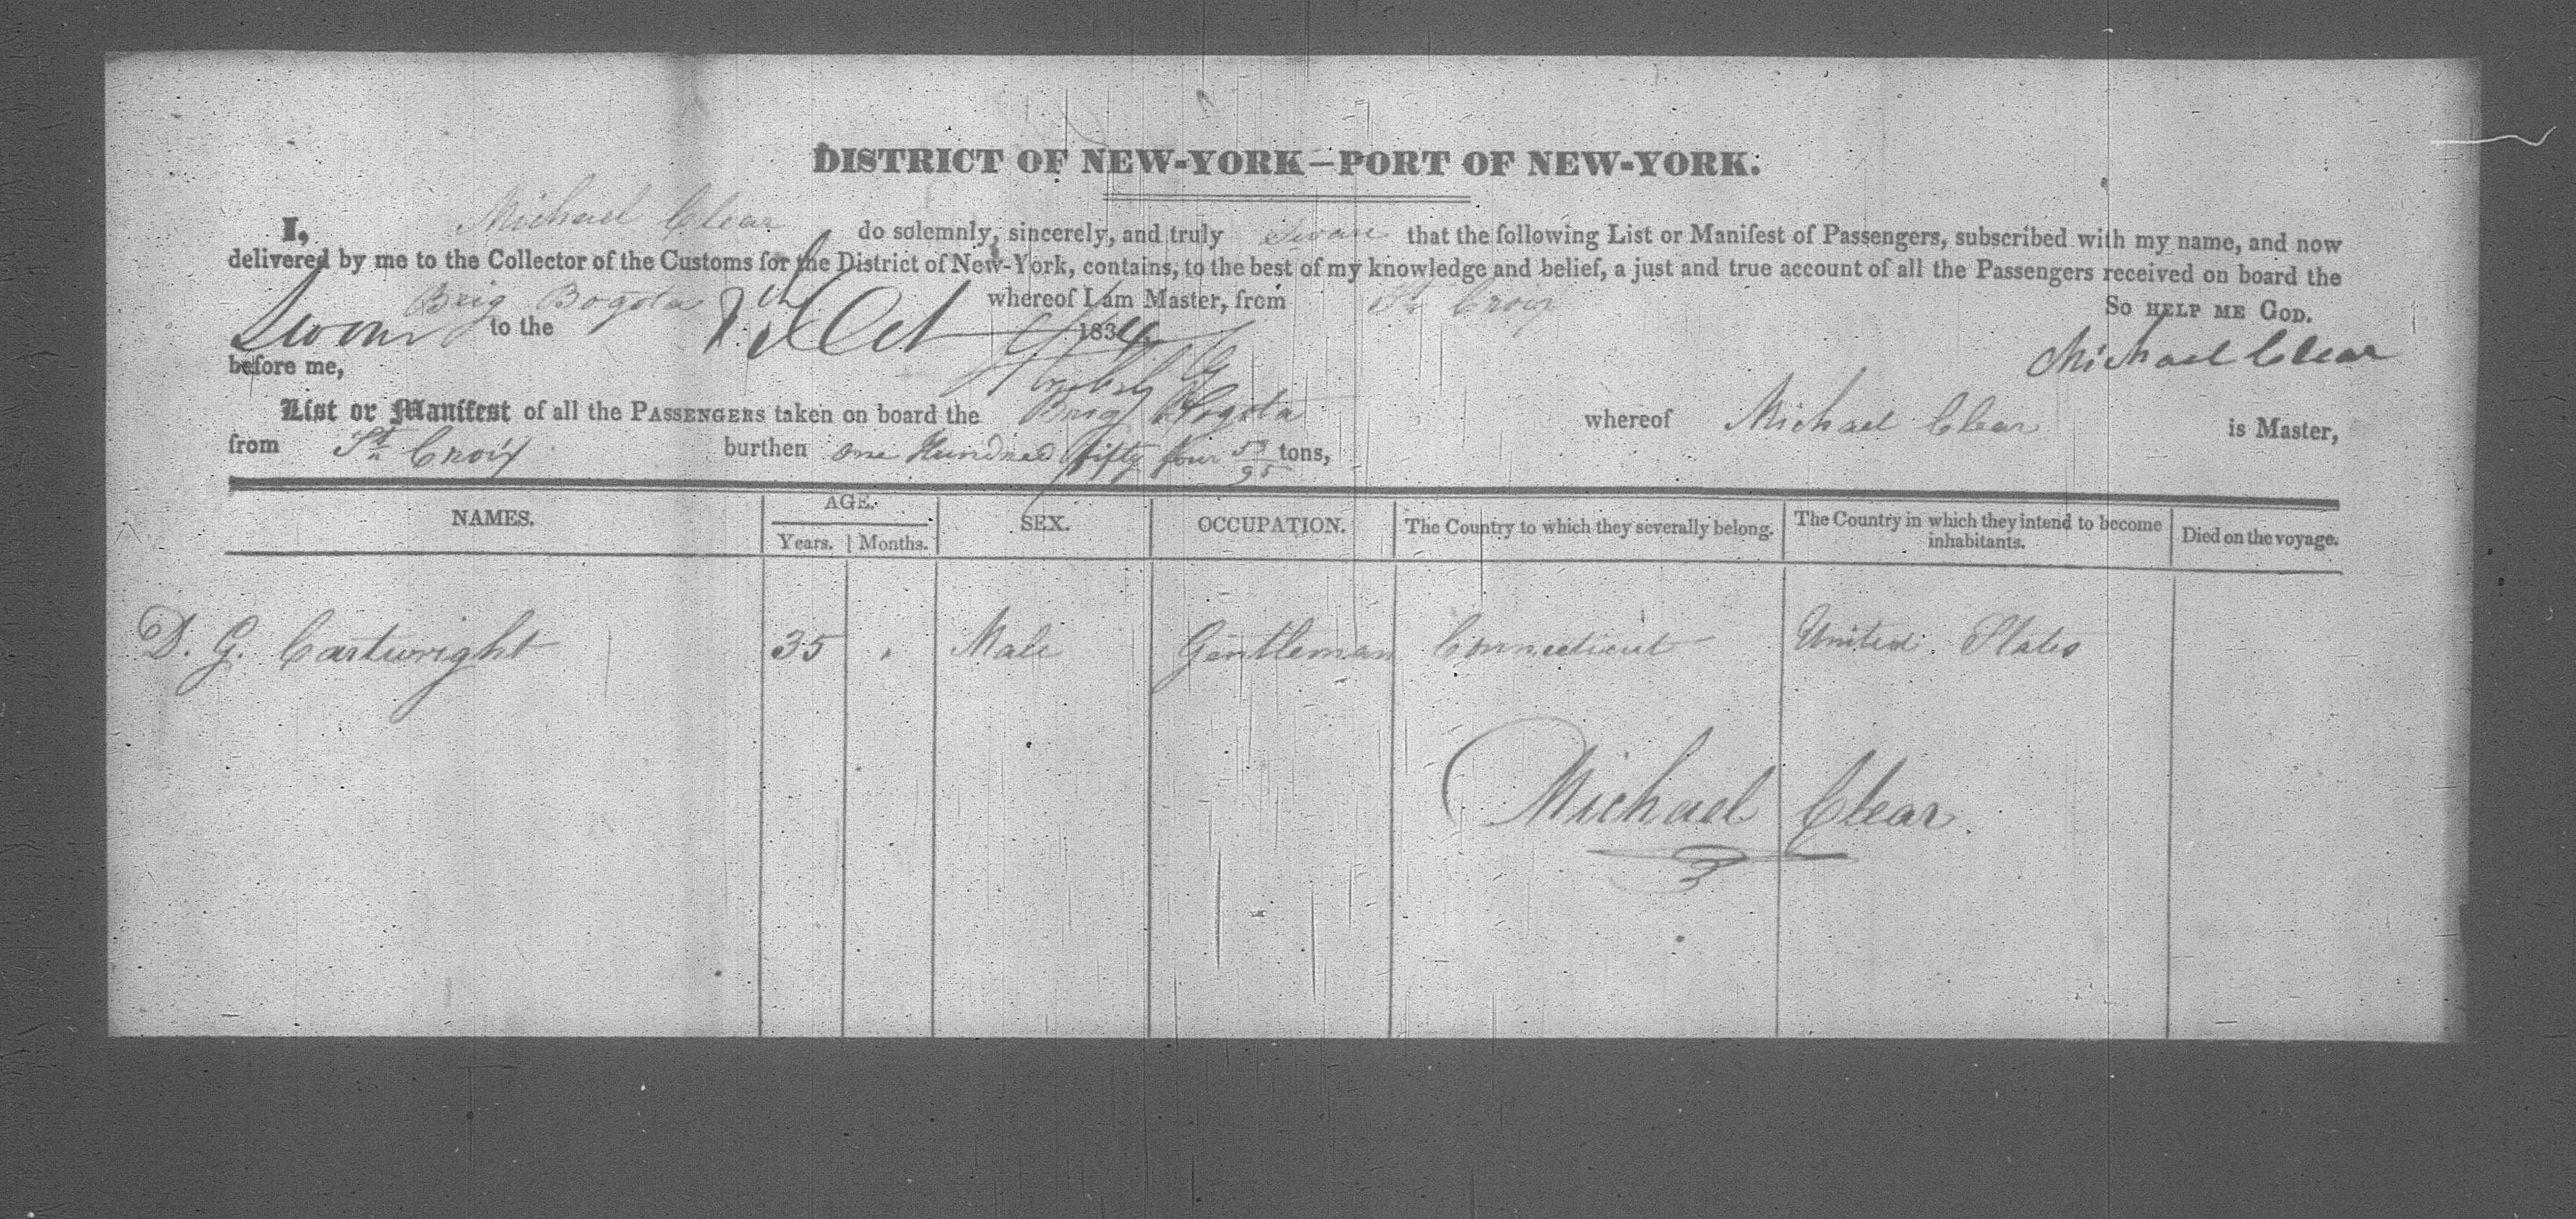 DISTRICT OF NEW-YORK—PORT OF NEW-YORK.
I, Michael Clear do solemnly, sincerely, and truly Swear that the following List or Manifest of Passengers, subscribed with my name, and now
delivered by me to the Collector of the Customs for the District of New-York, contains, to the best of my knowledge and belief, a just and true account of all the Passengers received on board the
Brig Bogota whereof I am Master, from St Croix So HELP ME GOD.
Sworn to the Oct 1834 Michael Clear
before me,
List or Manifest of all the PASSENGERS taken on board the Brig Bogota whereof Michael Clear is Master,
from St Croix burthen one Hundred fifty four 53/95 tons,
NAMES. AGE. Years. Months. SEX. OCCUPATION. The Country to which they severally belong. The Country in which they intend to become inhabitants. Died on the voyage.
D. G. Cartwright 35 Male Gentleman Connecticut United States
Michael Clear